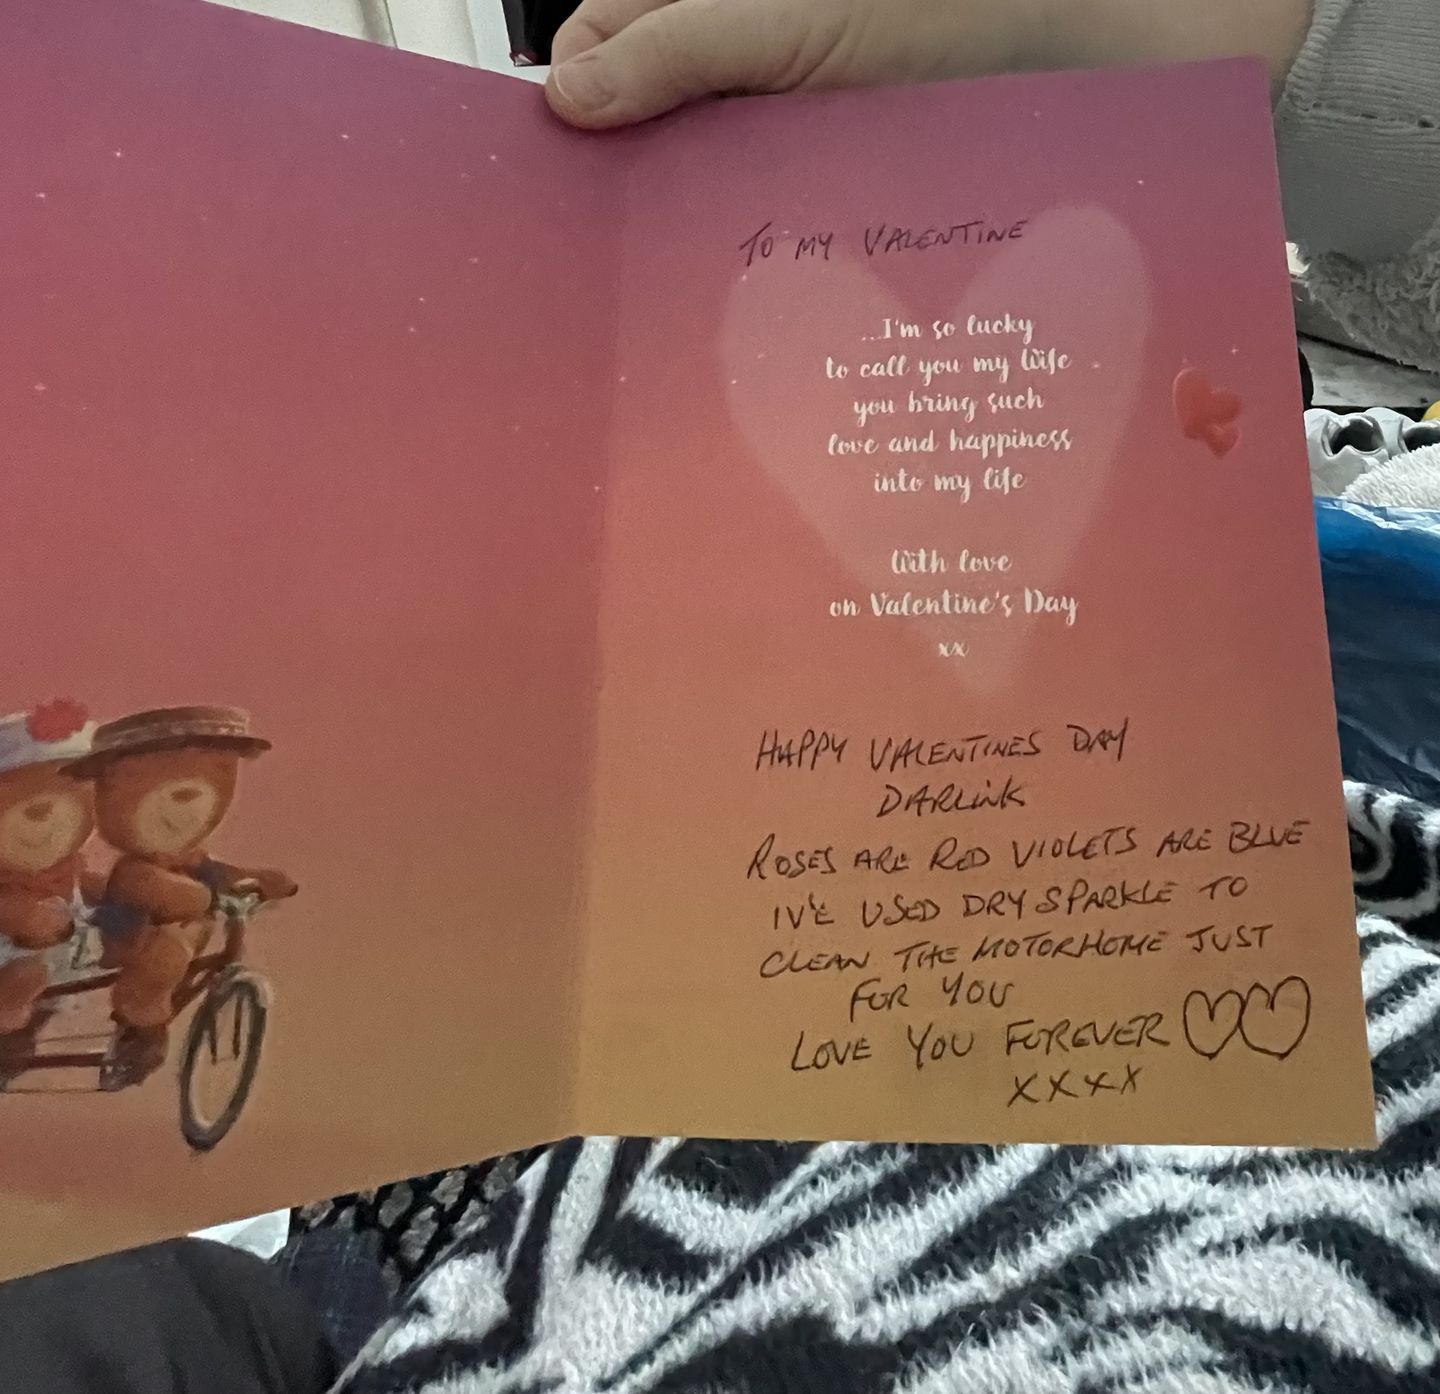 TO MY VALENTINE
...I'm so lucky
to call you my Wife
you bring such
love and happiness
into my life
With love
on Valentine's Day
xx
HAPPY VALENTINES DAY
DARLINK
ROSES ARE RED VIOLETS ARE BLUE
IV'E USED DRY SPARKLE TO
CLEAN THE MOTORHOME JUST
FOR YOU
LOVE YOU FOREVER
XXXX